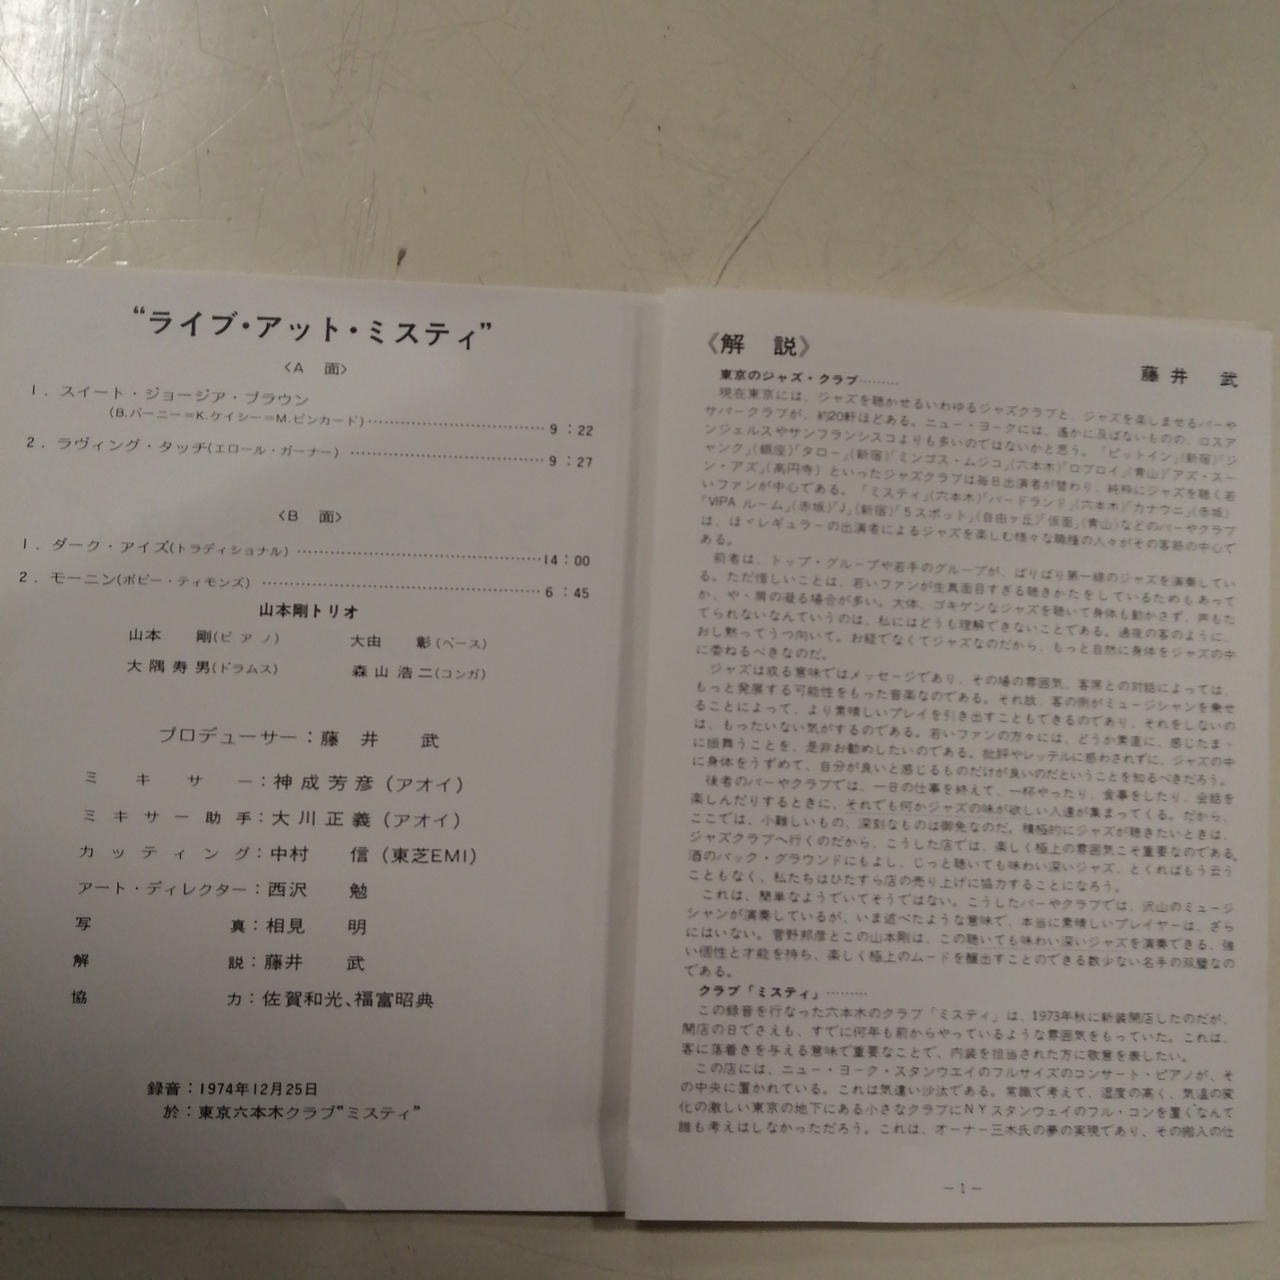 “ライブ・アット・ミスティ”
〈A 面〉
1．スイート・ジョージア・ブラウン
(B.バーニー=K.ケイシー=M.ピンカード)…………………9：22
2．ラヴィング・タッチ(エロール・ガーナー)…………………9：27
〈B 面〉
1．ダーク・アイズ(トラディショナル)…………………14：00
2．モーニン(ボビー・ティモンズ)…………………6：45
山本剛トリオ
山本 剛(ピアノ) 大由 彰(ベース)
大隅寿男(ドラムス) 森山浩二(コンガ)
プロデューサー：藤井 武
ミキサー：神成芳彦(アオイ)
ミキサー助手：大川正義(アオイ)
カッティング：中村 信(東芝EMI)
アート・ディレクター：西沢 勉
写真：相見 明
解説：藤井 武
協力：佐賀和光、福富昭典
録音：1974年12月25日
於：東京六本木クラブ“ミスティ”
《解 説》
藤井 武
東京のジャズ・クラブ………
現在東京には、ジャズを聴かせるいわゆるジャズクラブと、ジャズを楽しませるバーや
サパークラブが、約20軒ほどある。ニュー・ヨークには、遙かに及ばないものの、ロスア
ンジェルスやサンフランシスコよりも多いのではないかと思う。「ピットイン」(新宿)「ジ
ャンク」(銀座)「タロー」(新宿)「ミンゴス・ムジコ」(六本木)「ロブロイ」(青山)「アズ・スー
ン・アズ」(高円寺) といったジャズクラブは毎日出演者が替わり、純粋にジャズを聴く若
いファンが中心である。「ミスティ」(六本木)「バードランド」(六本木)「カナウニ」(赤坂)
「VIPA ルーム」(赤坂)「J」(新宿)「5スポット」(自由ヶ丘)「仮面」(青山)などのバーやクラブ
は、ほゞレギュラーの出演者によるジャズを楽しむ様々な職種の人々がその客筋の中心で
ある。
前者は、トップ・グループや若手のグループが、ばりばり第一線のジャズを演奏してい
る。ただ惜しいことは、若いファンが生真面目すぎる聴きかたをしているためもあって
か、やゝ肩の凝る場合が多い。大体、ゴキゲンなジャズを聴いて身体も動かさず、声もた
てられないなんていうのは、私にはどうも理解できないことである。通夜の客のように、
おし黙ってうつ向いて。お経でなくてジャズなのだから、もっと自然に身体をジャズの中
に委ねるべきなのだ。
ジャズは或る意味ではメッセージであり、その場の雰囲気、客席との対話によっては、
もっと発展する可能性をもった音楽なのである。それ故、客の側がミュージシャンを乗せ
ることによって、より素晴しいプレイを引き出すこともできるのであり、それをしないの
は、もったいない気がするのである。若いファンの方々には、どうか素直に、感じたまゝ
に振舞うことを、是非お勧めしたいのである。批評やレッテルに惑わされずに、ジャズの中
に身体をうずめて、自分が良いと感じるものだけが良いのだということを知るべきだろう。
後者のバーやクラブでは、一日の仕事を終えて、一杯やったり、食事をしたり、会話を
楽しんだりするときに、それでも何かジャズの味が欲しい人達が集まってくる。だから、
ここでは、小難しいもの、深刻なものは御免なのだ。積極的にジャズが聴きたいときは、
ジャズクラブへ行くのだから、こうした店では、楽しく極上の雰囲気こそ重要なのである。
酒のバック・グラウンドにもよし、じっと聴いても味わい深いジャズ、とくればもう云う
こともなく、私たちはひたすら店の売り上げに協力することになろう。
これは、簡単なようでいてそうではない。こうしたバーやクラブでは、沢山のミュージ
シャンが演奏しているが、いま述べたような意味で、本当に素晴しいプレイヤーは、ざら
にはいない。菅野邦彦とこの山本剛は、この聴いても味わい深いジャズを演奏できる、強
い個性と才能を持ち、楽しく極上のムードを醸出すことのできる数少ない名手の双璧なの
である。
クラブ「ミスティ」………
この録音を行なった六本木のクラブ「ミスティ」は、1973年秋に新装開店したのだが、
開店の日でさえも、すでに何年も前からやっているような雰囲気をもっていた。これは、
客に落着きを与える意味で重要なことで、内装を担当された方に敬意を表したい。
この店には、ニュー・ヨーク・スタンウエイのフルサイズのコンサート・ピアノが、そ
の中央に置かれている。これは気違い沙汰である。常識で考えて、湿度の高く、気温の変
化の激しい東京の地下にある小さなクラブにNYスタンウェイのフル・コンを置くなんて
誰も考えはしなかっただろう。これは、オーナー三木氏の夢の実現であり、その搬入の仕
－1－